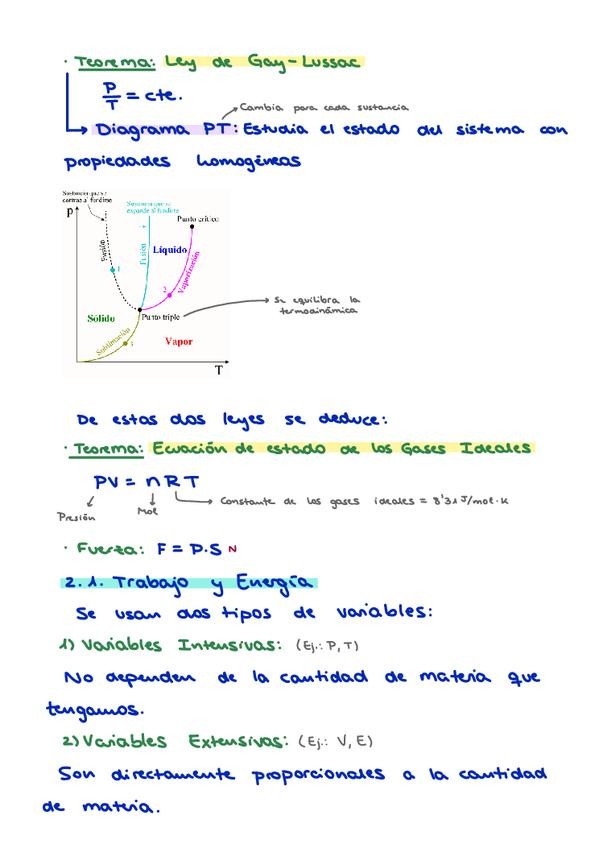 · Teorema: Ley de Gay-Lussac
P/T = cte.
Cambia para cada sustancia
Diagrama PT: Estudia el estado del sistema con
propiedades homogéneas
Sustancia que se
contrae al fundirse
Sustancia que se
expande al fundirse
P
Punto crítico
Fusión
Fusión
Líquido
Vaporización
1
2
Se equilibra la
termodinámica
Sólido
Punto triple
Sublimación
3
Vapor
T
De estas dos leyes se deduce:
· Teorema: Ecuación de estado de los Gases Ideales
PV = nRT
Constante de los gases ideales = 8'31 J/mol·K
Presión
Mol
· Fuerza: F = P·S N
2.1. Trabajo y Energía
Se usan dos tipos de variables:
1) Variables Intensivas: (Ej.: P, T)
No dependen de la cantidad de materia que
tengamos.
2) Variables Extensivas: (Ej.: V, E)
Son directamente proporcionales a la cantidad
de materia.